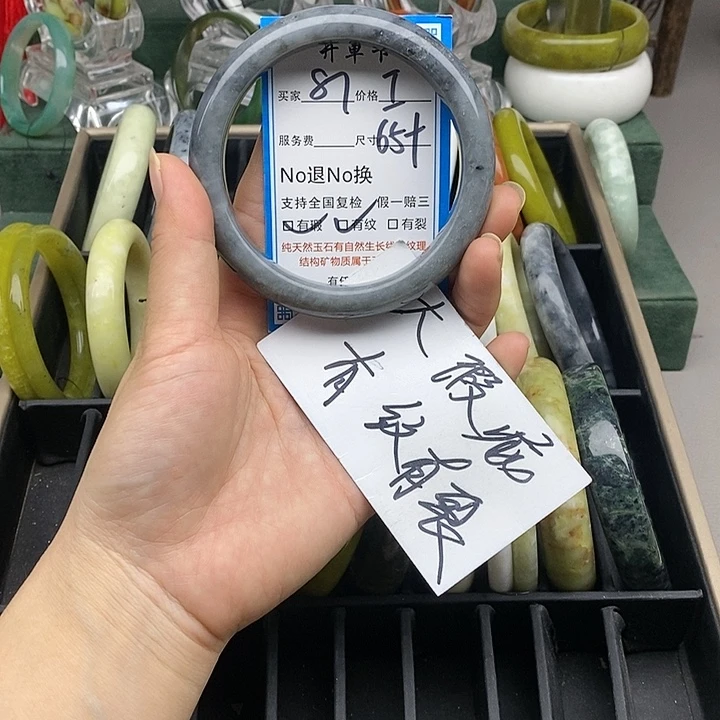 开单卡
买家 87 价格 I
服务费 尺寸 65+
No退No换
支持全国复检 假一赔三
☑有瑕 ☑有纹 □有裂
纯天然玉石有自然生长纹 纹理
结构矿物质属于
有任
大 瑕疵
有 纹有裂